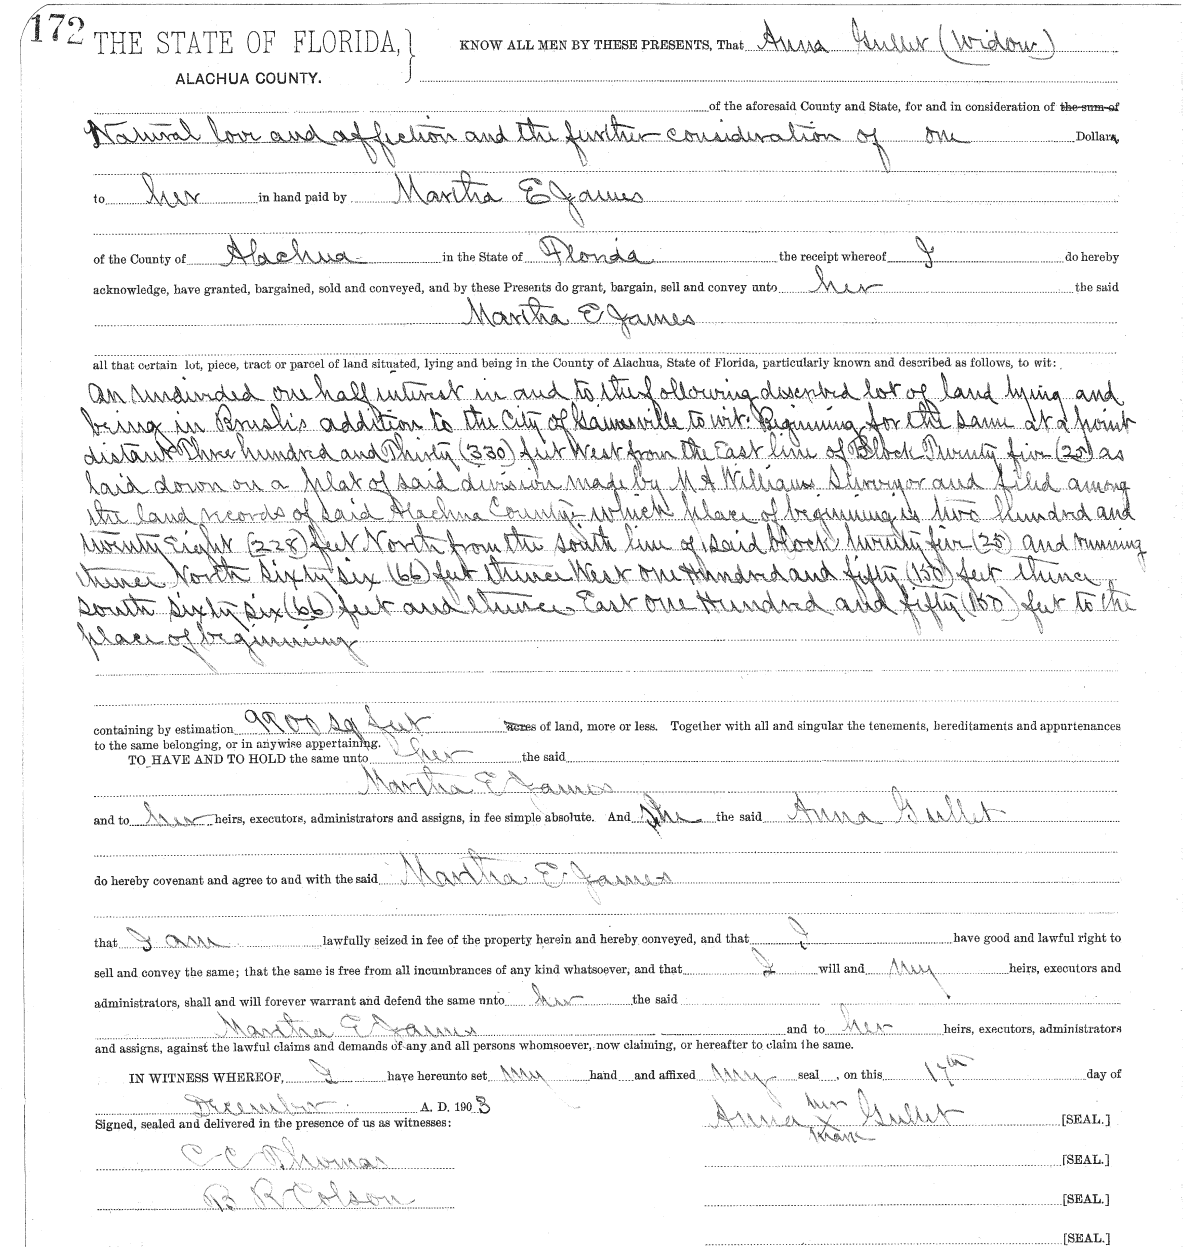 172
THE STATE OF FLORIDA,
ALACHUA COUNTY.
KNOW ALL MEN BY THESE PRESENTS, That Anna Gullet (Widow)
of the aforesaid County and State, for and in consideration of the sum of
Natural love and affection and the further consideration of one Dollars,
to her in hand paid by Martha E James
of the County of Alachua in the State of Florida the receipt whereof I do hereby
acknowledge, have granted, bargained, sold and conveyed, and by these Presents do grant, bargain, sell and convey unto her the said
Martha E James
all that certain lot, piece, tract or parcel of land situated, lying and being in the County of Alachua, State of Florida, particularly known and described as follows, to wit:
An undivided one half interest in and to the following described lot of land lying and
being in Brush's addition to the City of Gainesville to wit: Beginning for the same at a point
distant Three hundred and Thirty (330) feet West from the East line of Block Twenty five (25) as
laid down on a plat of said division made by M A Williams Surveyor and filed among
the land records of said Alachua County– which place of beginning is two Hundred and
twenty Eight (228) feet North from the south line of said block twenty five (25) and running
thence North sixty six (66) feet thence West one Hundred and fifty (150) feet thence
south sixty six (66) feet and thence East one Hundred and fifty (150) feet to the
place of beginning
containing by estimation 9900 sq feet Acres of land, more or less. Together with all and singular the tenements, hereditaments and appurtenances
to the same belonging, or in anywise appertaining.
TO HAVE AND TO HOLD the same unto her the said
Martha E James
and to her heirs, executors, administrators and assigns, in fee simple absolute. And she the said Anna Gullet
do hereby covenant and agree to and with the said Martha E James
that I am lawfully seized in fee of the property herein and hereby conveyed, and that I have good and lawful right to
sell and convey the same; that the same is free from all incumbrances of any kind whatsoever, and that I will and my heirs, executors and
administrators, shall and will forever warrant and defend the same unto her the said
Martha E James and to her heirs, executors, administrators
and assigns, against the lawful claims and demands of any and all persons whomsoever, now claiming, or hereafter to claim the same.
IN WITNESS WHEREOF, I have hereunto set my hand and affixed my seal, on this 17th day of
December A. D. 1903
Signed, sealed and delivered in the presence of us as witnesses:
her
Anna X Gullet [SEAL.]
mark
C C Thomas [SEAL.]
B R Colson [SEAL.]
[SEAL.]